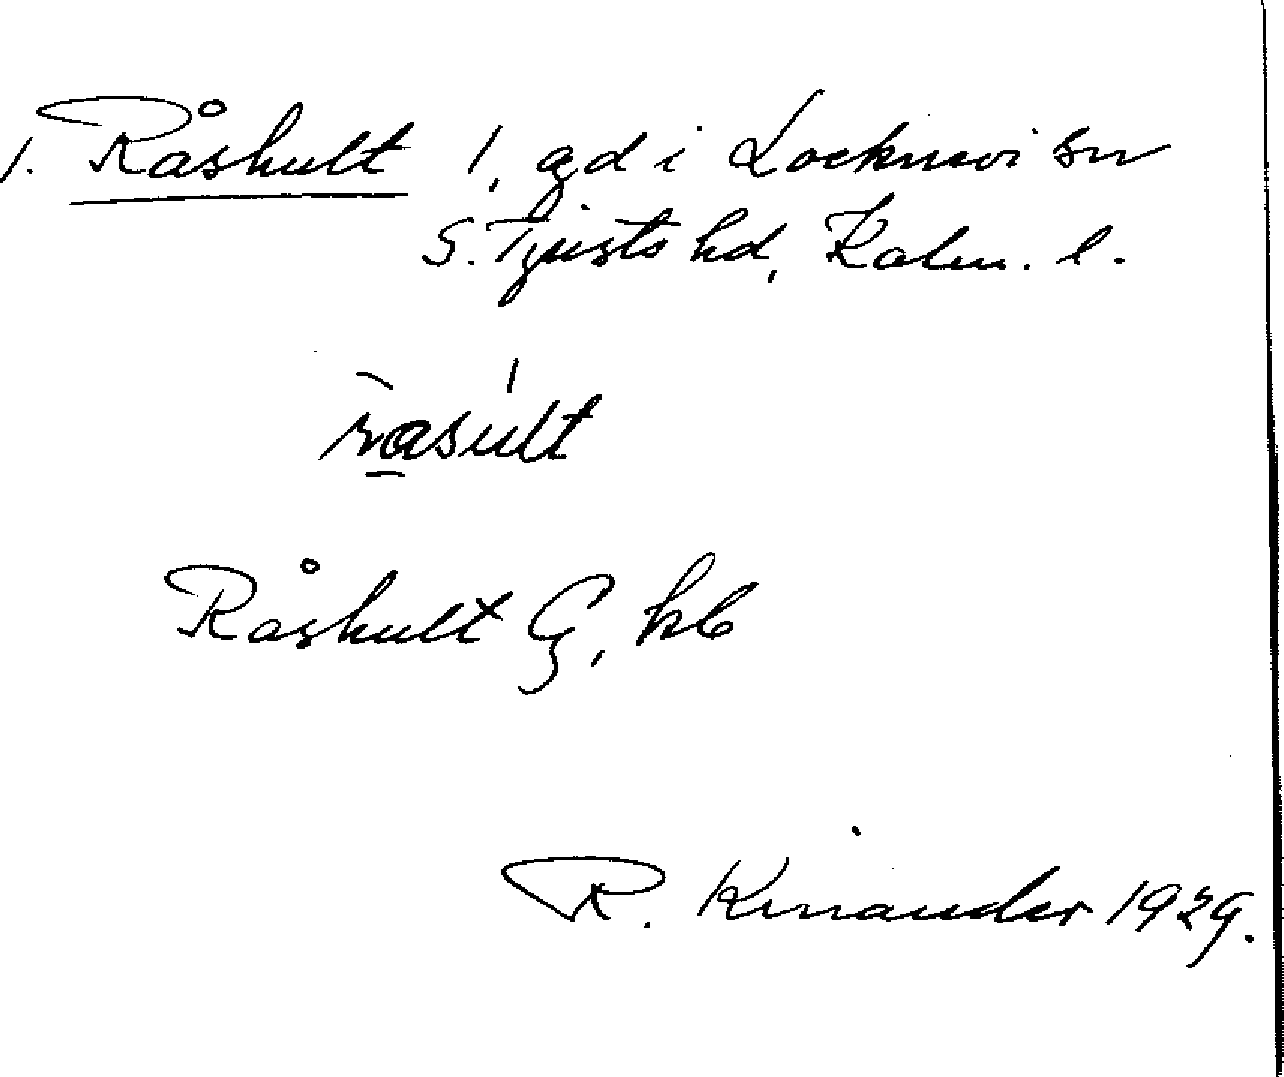 1. Råshult 1, gd i Locknevi sn
S. Tjusts hd, Kalm. l.
rasult
Råshult G, kb
R. Kinander 1929.